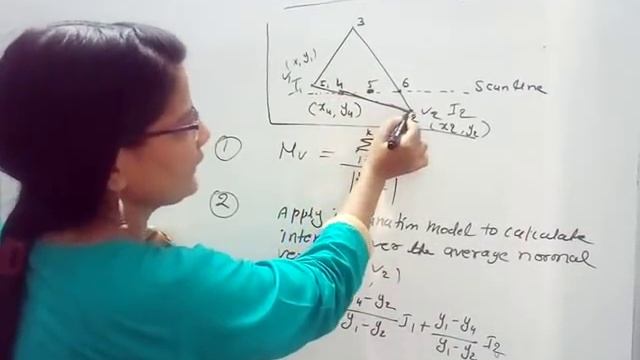 3
(x, y1)
v1 I1 5, 4 5 6 Scanline
(x4, y4) 2 v2 I2
(x2, y2)
1 Mv = Σ k
2 Apply model to calculate
over the average normal
v2)
y4-y2 / y1-y2 I1 + y1-y4 / y1-y2 I2